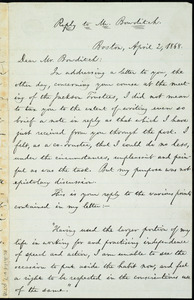 Reply to Mr. Bowditch.
Boston, April 2, 1868.
Dear Mr. Bowditch:
In addressing a letter to you, the
other day, concerning your course at the meet-
ing of the Jackson Trustees, I did not mean to
tax you to the extent of writing even so
brief a note in reply as that which I have
just received from you through the post. I
felt, as a co-trustee, that I could do no less,
under the circumstances, unpleasant and pain-
ful as was the task. But my purpose was not
epistolary discussion.
This is your reply to the various points
contained in my letter:—
"Having used the larger portion of my
life in working for and practising independence
of speech and action, I am unable to see the
occasion to put aside the habit now, and feel
a right to be respected in the convictions one
of the same."